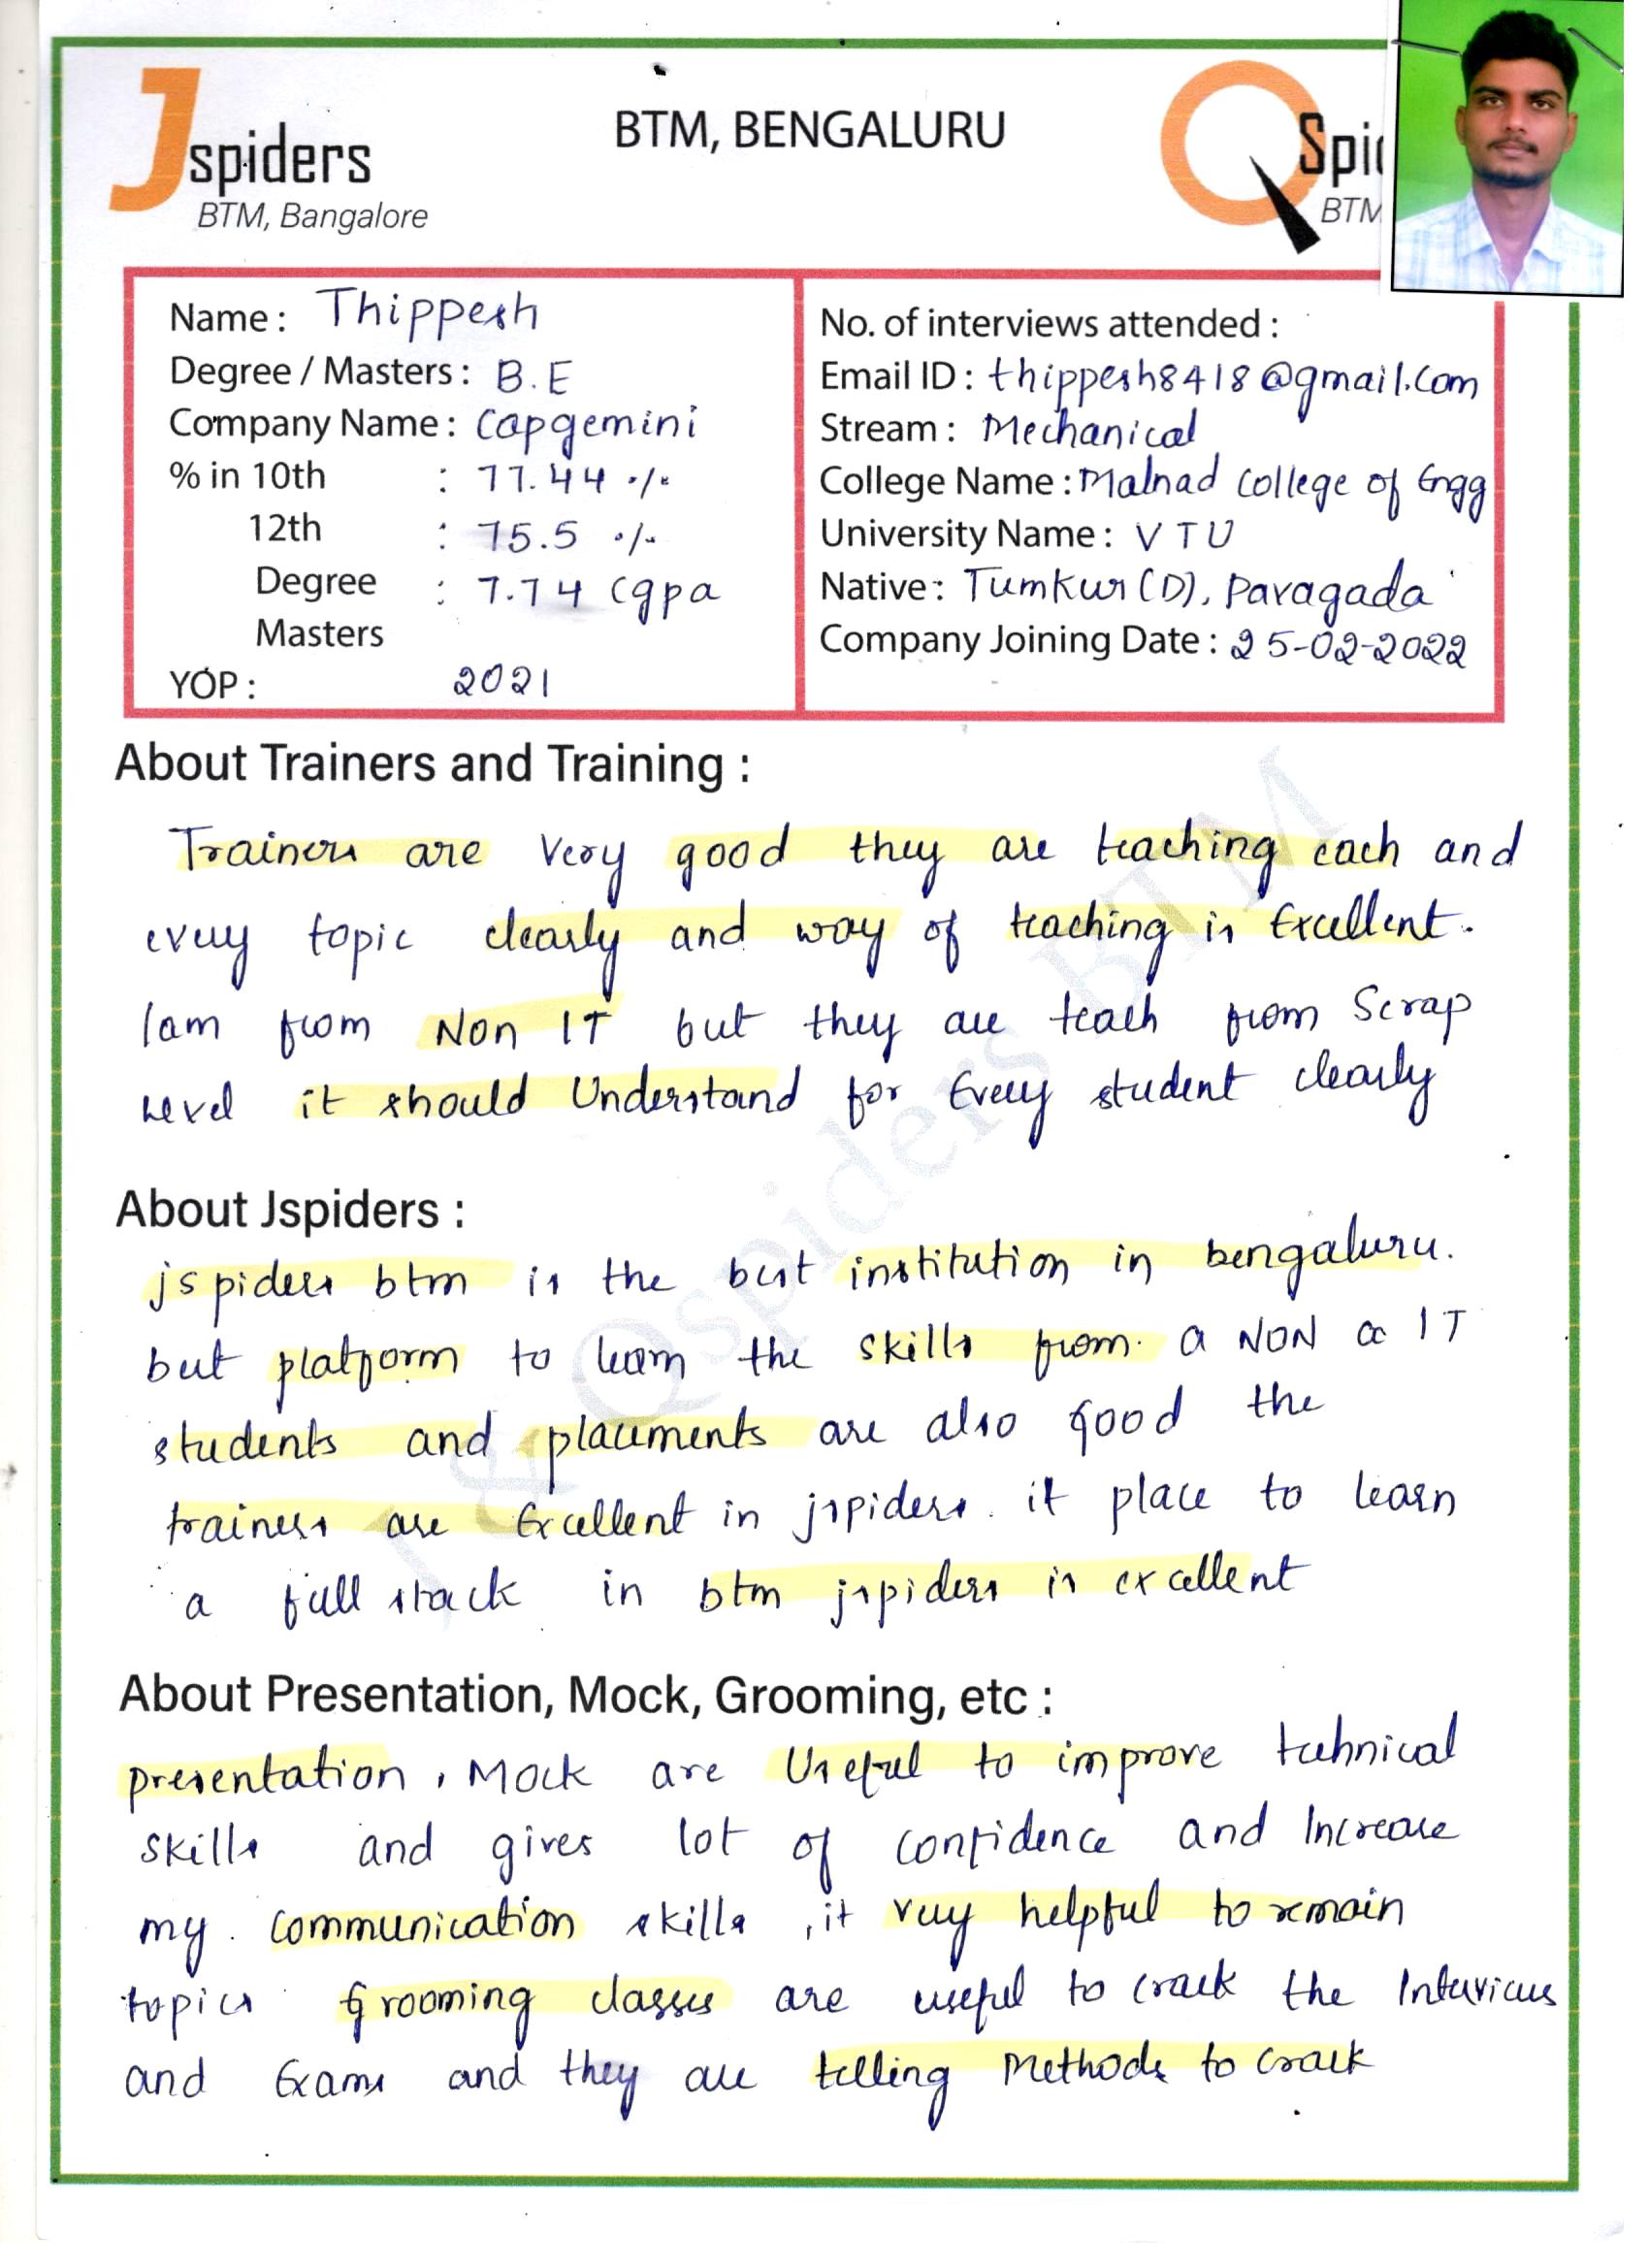 Jspiders
BTM, Bangalore
BTM, BENGALURU
QSpi
BTM
Name : Thippesh
Degree / Masters : B.E
Company Name : Capgemini
% in 10th : 77.44 %
12th : 75.5 %
Degree : 7.74 cgpa
Masters
YOP : 2021
No. of interviews attended :
Email ID : thippesh8418@gmail.com
Stream : Mechanical
College Name : Malnad College of Engg
University Name : VTU
Native : Tumkur (D), Pavagada
Company Joining Date : 25-02-2022
About Trainers and Training :
Trainers are very good they are teaching each and
every topic clearly and way of teaching is Excellent.
I am from Non IT but they are teach from Scrap
level it should Understand for Every student clearly
About Jspiders :
jspiders btm is the best institution in bengaluru.
best platform to learn the skills from a NON IT
students and placements are also good the
trainers are Excellent in jspiders. it place to learn
a full stack in btm jspiders is excellent
About Presentation, Mock, Grooming, etc :
presentation, Mock are Useful to improve technical
skills and gives lot of confidence and Increase
my communication skills, it very helpful to remain
topics Grooming classes are useful to crack the Interviews
and Exams and they are telling Methods to crack
J & Qspiders BTM